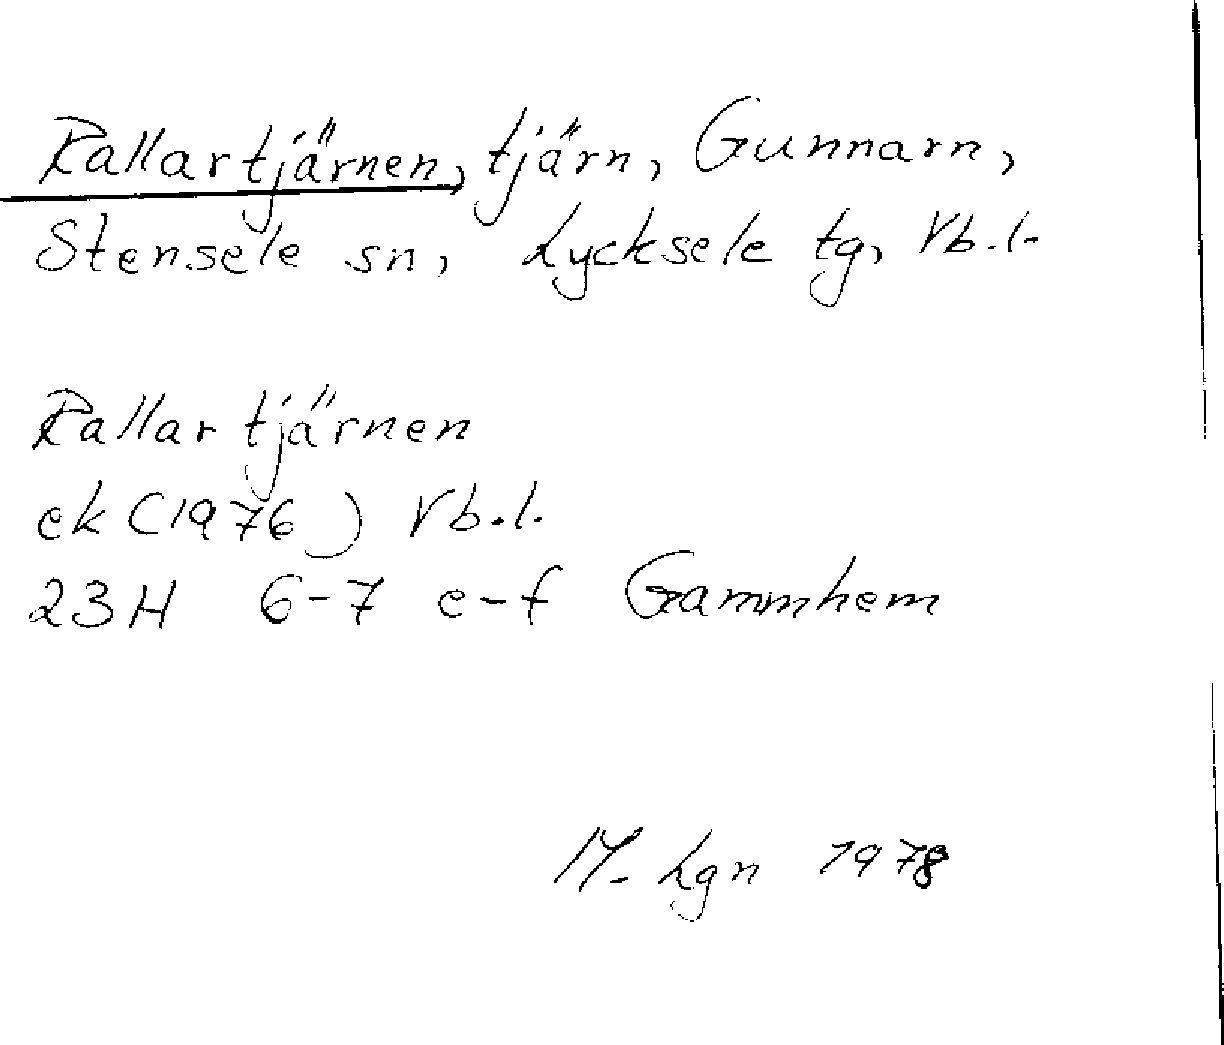 Rallartjärnen, tjärn, Gunnarn,
Stensele sn, Lycksele tg, Vb.l.
Rallartjärnen
ek (1976) Vb.l.
23H 6-7 e-f Gammhem
M. Lgn 1978